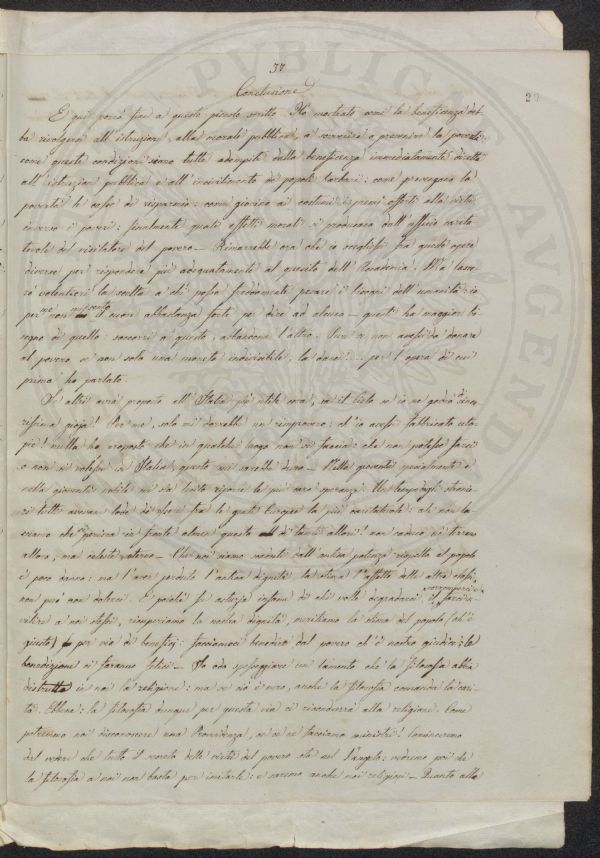 PVBLICAE
AVGENDAE
37
20
Conclusione
E qui porrò fine a questo piccolo scritto. Ho mostrato come la beneficenza deb-
ba rivolgersi all'istruzione, alla morale pubblica, a sovvenire o prevenire la povertà:
come queste condizioni siano tutte adempite dalla beneficenza immediatamente diretta
all'istruzione pubblica e all'incivilimento de' popoli barbari: come prevengano la
povertà le casse di risparmio: come giovino ai costumi i premi offerti alla virtù
inverso i poveri: finalmente quali effetti morali si producano dall'officio carita-
tevole del visitatore del povero — Rimarrebbe ora che io scegliessi fra queste opere
diverse per rispondere più adeguatamente al quesito dell'Accademia. Ma lasce-
rò volentieri la scelta a chi possa freddamente pesare i bisogni dell'umanità: io
per me non mi sento il cuore abbastanza forte per dire ad alcuno — questi ha maggior bi-
sogno di quello: soccorri a questo, abbandona l'altro. Pure se non avessi da donare
al povero se non solo una moneta indivisibile, la darei .... per l'opera di cui
prima ho parlato.
Se altri avrà proposto all'Italia più utile cosa, sa il Cielo se io ne godrò since-
rissima gioja! Per me, solo mi dorrebbe un rimprovero: ch'io avessi fabbricato uto-
pie! nulla ho proposto che in qualche luogo non si faccia: che non potesse farsi
o non si volesse in Italia, questo mi sarebbe duro — Nella gioventù specialmente e
nella gioventù nobile mi sia lecito riporre le più care speranze. Un tempo dagli stranie-
ri tutte avevan lode di gloria fra le quali la più caritatevole: ah non la-
sciamo che perisca in fronte almen questo di tanti allori! non caduco, nè terreno
alloro, ma celeste, eterno — Che noi siamo caduti dall'antica potenza rispetto al popolo
è poco danno: ma l'aver perduto l'antica dignità, la stima e l'affetto delle altre classi,
non può non dolerci. E poichè fu astuzia infame di chi volle degradarci, il corromperci e farci a-
vilire a noi stessi, rimperiamo la nostra dignità, meritiamo la stima del popolo (ch'è
giusto) per via di benefizi: facciamoci benedire dal povero ch'è nostro giudice; le
benedizioni ci faranno felici — Io odo spesseggiare un lamento che la filosofia abbia
distrutta in noi la religione: ma se ciò è vero, anche la filosofia comanda la cari-
tà. Ebbene: la filosofia dunque per questa via ci ricondurrà alla religione. Come
potremmo noi disconoscere una Provvidenza, se ce ne facciamo ministri! Cominceremo
dal vedere che tutto il secreto delle virtù del povero sta nel Vangelo: vedremo poi che
la filosofia a noi non basta per imitarle: e saremo anche noi religiosi — Quanto alla